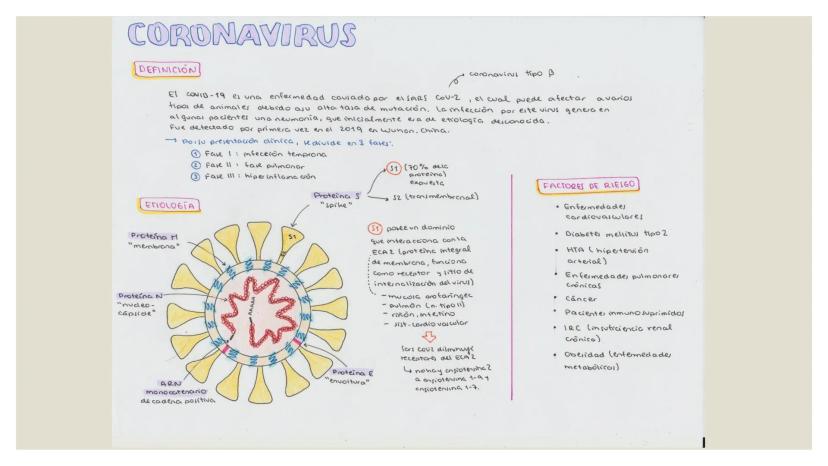 CORONAVIRUS
DEFINICIÓN
coronavirus tipo β
El COVID-19 es una enfermedad causado por el SARS CoV-2, el cual puede afectar a varios
tipos de animales debido a su alta tasa de mutación. La infección por este virus genera en
algunos pacientes una neumonía, que inicialmente era de etiología desconocida.
Fue detectado por primera vez en el 2019 en Wuhan, China.
→ Por su presentación clínica, se divide en 3 fases:
① Fase I : infección temprana
② Fase II : fase pulmonar
③ Fase III : hiperinflamación
ETIOLOGÍA
Proteína S
"spike"
S1 (70% de la
proteína)
expuesta
S2 (transmembrana)
S1
Proteína M
"membrana"
Proteína N
"nucleo-
cápside"
ARN
monocatenario
de cadena positiva
Proteína E
"envoltura"
S1 posee un dominio
que interacciona con la
ECA2 (proteína integral
de membrana, funciona
como receptor y sitio de
internalización del virus)
- mucosa orofaringea
- pulmón (n. tipo II)
- riñón, intestino
- sist. cardiovascular
Sars Cov2 disminuye
receptores del ECA2
↳ no hay angiotensina 2
a angiotensina 1-9 y
angiotensina 1-7.
FACTORES DE RIESGO
• Enfermedades
cardiovasculares
• Diabetes mellitus tipo 2
• HTA (hipertensión
arterial)
• Enfermedades pulmonares
crónicas
• Cáncer
• Pacientes inmunosuprimidos
• IRC (insuficiencia renal
crónica)
• Obesidad (enfermedades
metabólicas)